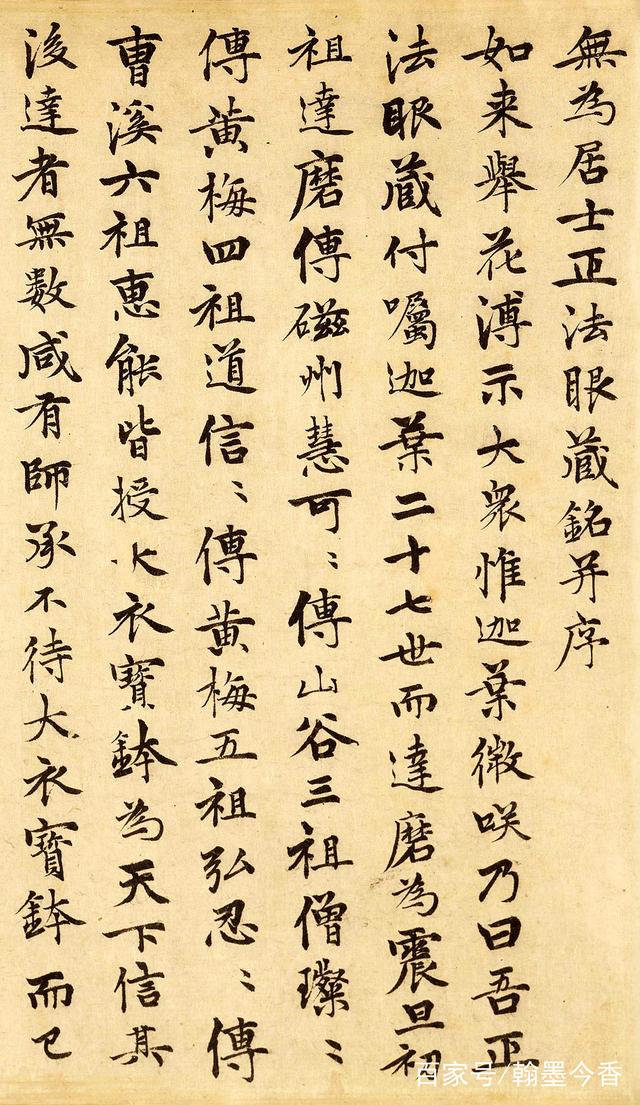 無為居士正法眼蔵銘并序
如来舉花溥示大衆惟迦葉微咲乃曰吾正
法眼蔵付囑迦葉二十七世而達磨為震旦初
祖達磨傳磁州慧可〻傳山谷三祖僧璨〻
傳黄梅四祖道信〻傳黄梅五祖弘忍〻傳
曹溪六祖惠能皆授大衣寶鉢為天下信其
後達者無数咸有師承不待大衣寶鉢而已
百家号/翰墨今香